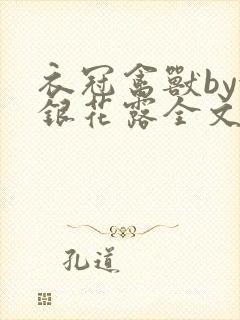 衣冠禽獸by
銀花露全文
孔道